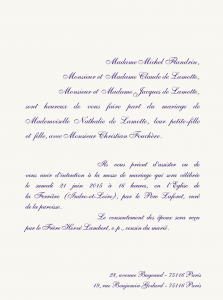 Madame Michel Flandrin,
Monsieur et Madame Claude de Lamotte,
Monsieur et Madame Jacques de Lamotte,
sont heureux de vous faire part du mariage de
Mademoiselle Nathalie de Lamotte, leur petite-fille
et fille, avec Monsieur Christian Fouchère.
Ils vous prient d'assister ou de
vous unir d'intention à la messe de mariage qui sera célébrée
le samedi 21 juin 2015 à 16 heures, en l'Église de
la Ferrière (Indre-et-Loire), par le Père Lafont, curé
de la paroisse.
Le consentement des époux sera reçu
par le Frère Hervé Lambert, o.p., cousin du marié.
24, avenue Bugeaud - 75116 Paris
19, rue Benjamin Godard - 75116 Paris